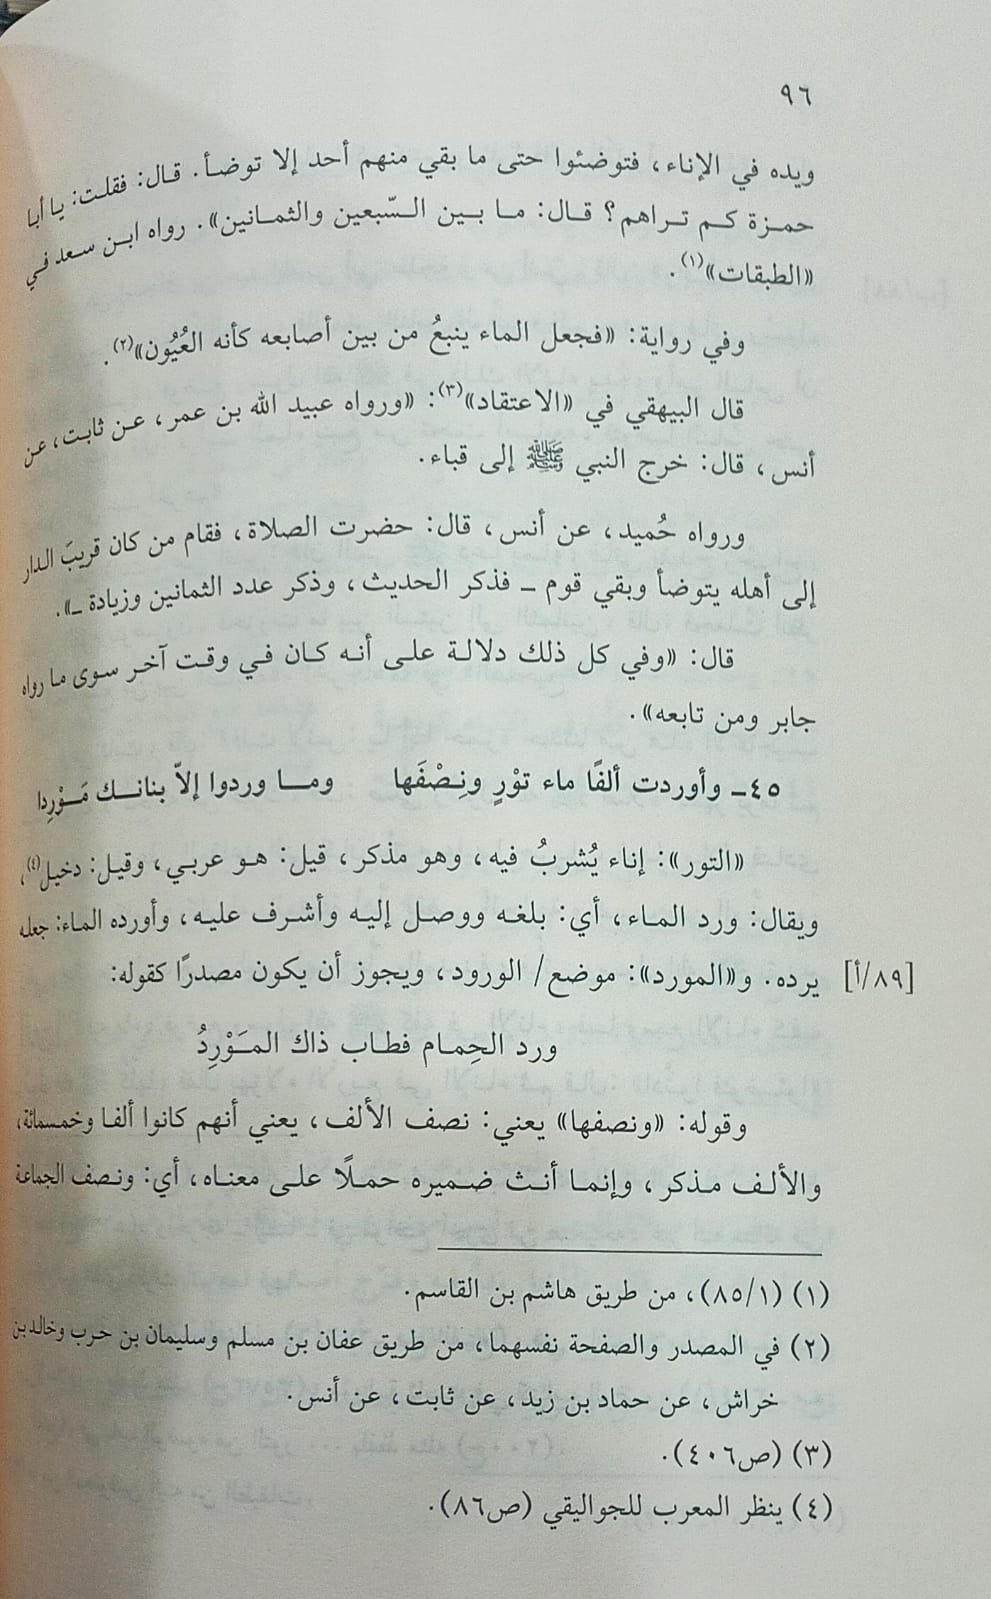 ٩٦
ويده في الإناء، فتوضئوا حتى ما بقي منهم أحد إلا توضأ. قال: فقلت: يا أبا
حمزة كم تراهم؟ قال: ما بين السّبعين والثمانين». رواه ابن سعد في
«الطبقات»(١).
وفي رواية: «فجعل الماء ينبعُ من بين أصابعه كأنه العُيُون»(٢).
قال البيهقي في «الاعتقاد»(٣): «ورواه عبيد الله بن عمر، عن ثابت، عن
أنس، قال: خرج النبي ﷺ إلى قباء.
ورواه حُميد، عن أنس، قال: حضرت الصلاة، فقام من كان قريبَ الدار
إلى أهله يتوضأ وبقي قوم ـ فذكر الحديث، وذكر عدد الثمانين وزيادة ـ».
قال: «وفي كل ذلك دلالة على أنه كان في وقت آخر سوى ما رواه
جابر ومن تابعه».
٤٥ـ وأوردت ألفًا ماء توْرٍ ونِصْفَها وما وردوا إلاّ بنانك مَوْرِدا
«التور»: إناء يُشربُ فيه، وهو مذكر، قيل: هو عربي، وقيل: دخيل(٤)،
ويقال: ورد الماء، أي: بلغه ووصل إليه وأشرف عليه، وأورده الماء: جعله
يرده. و«المورد»: موضع/ الورود، ويجوز أن يكون مصدرًا كقوله: [٨٩/أ]
ورد الحِمام فطاب ذاك المَوْرِدُ
وقوله: «ونصفها» يعني: نصف الألف، يعني أنهم كانوا ألفا وخمسمائة،
والألف مذكر، وإنما أنث ضميره حملًا على معناه، أي: ونصف الجماعة
(١) (٨٥/١)، من طريق هاشم بن القاسم.
(٢) في المصدر والصفحة نفسهما، من طريق عفان بن مسلم وسليمان بن حرب وخالد بن
خراش، عن حماد بن زيد، عن ثابت، عن أنس.
(٣) (ص٤٠٦).
(٤) ينظر المعرب للجواليقي (ص٨٦).